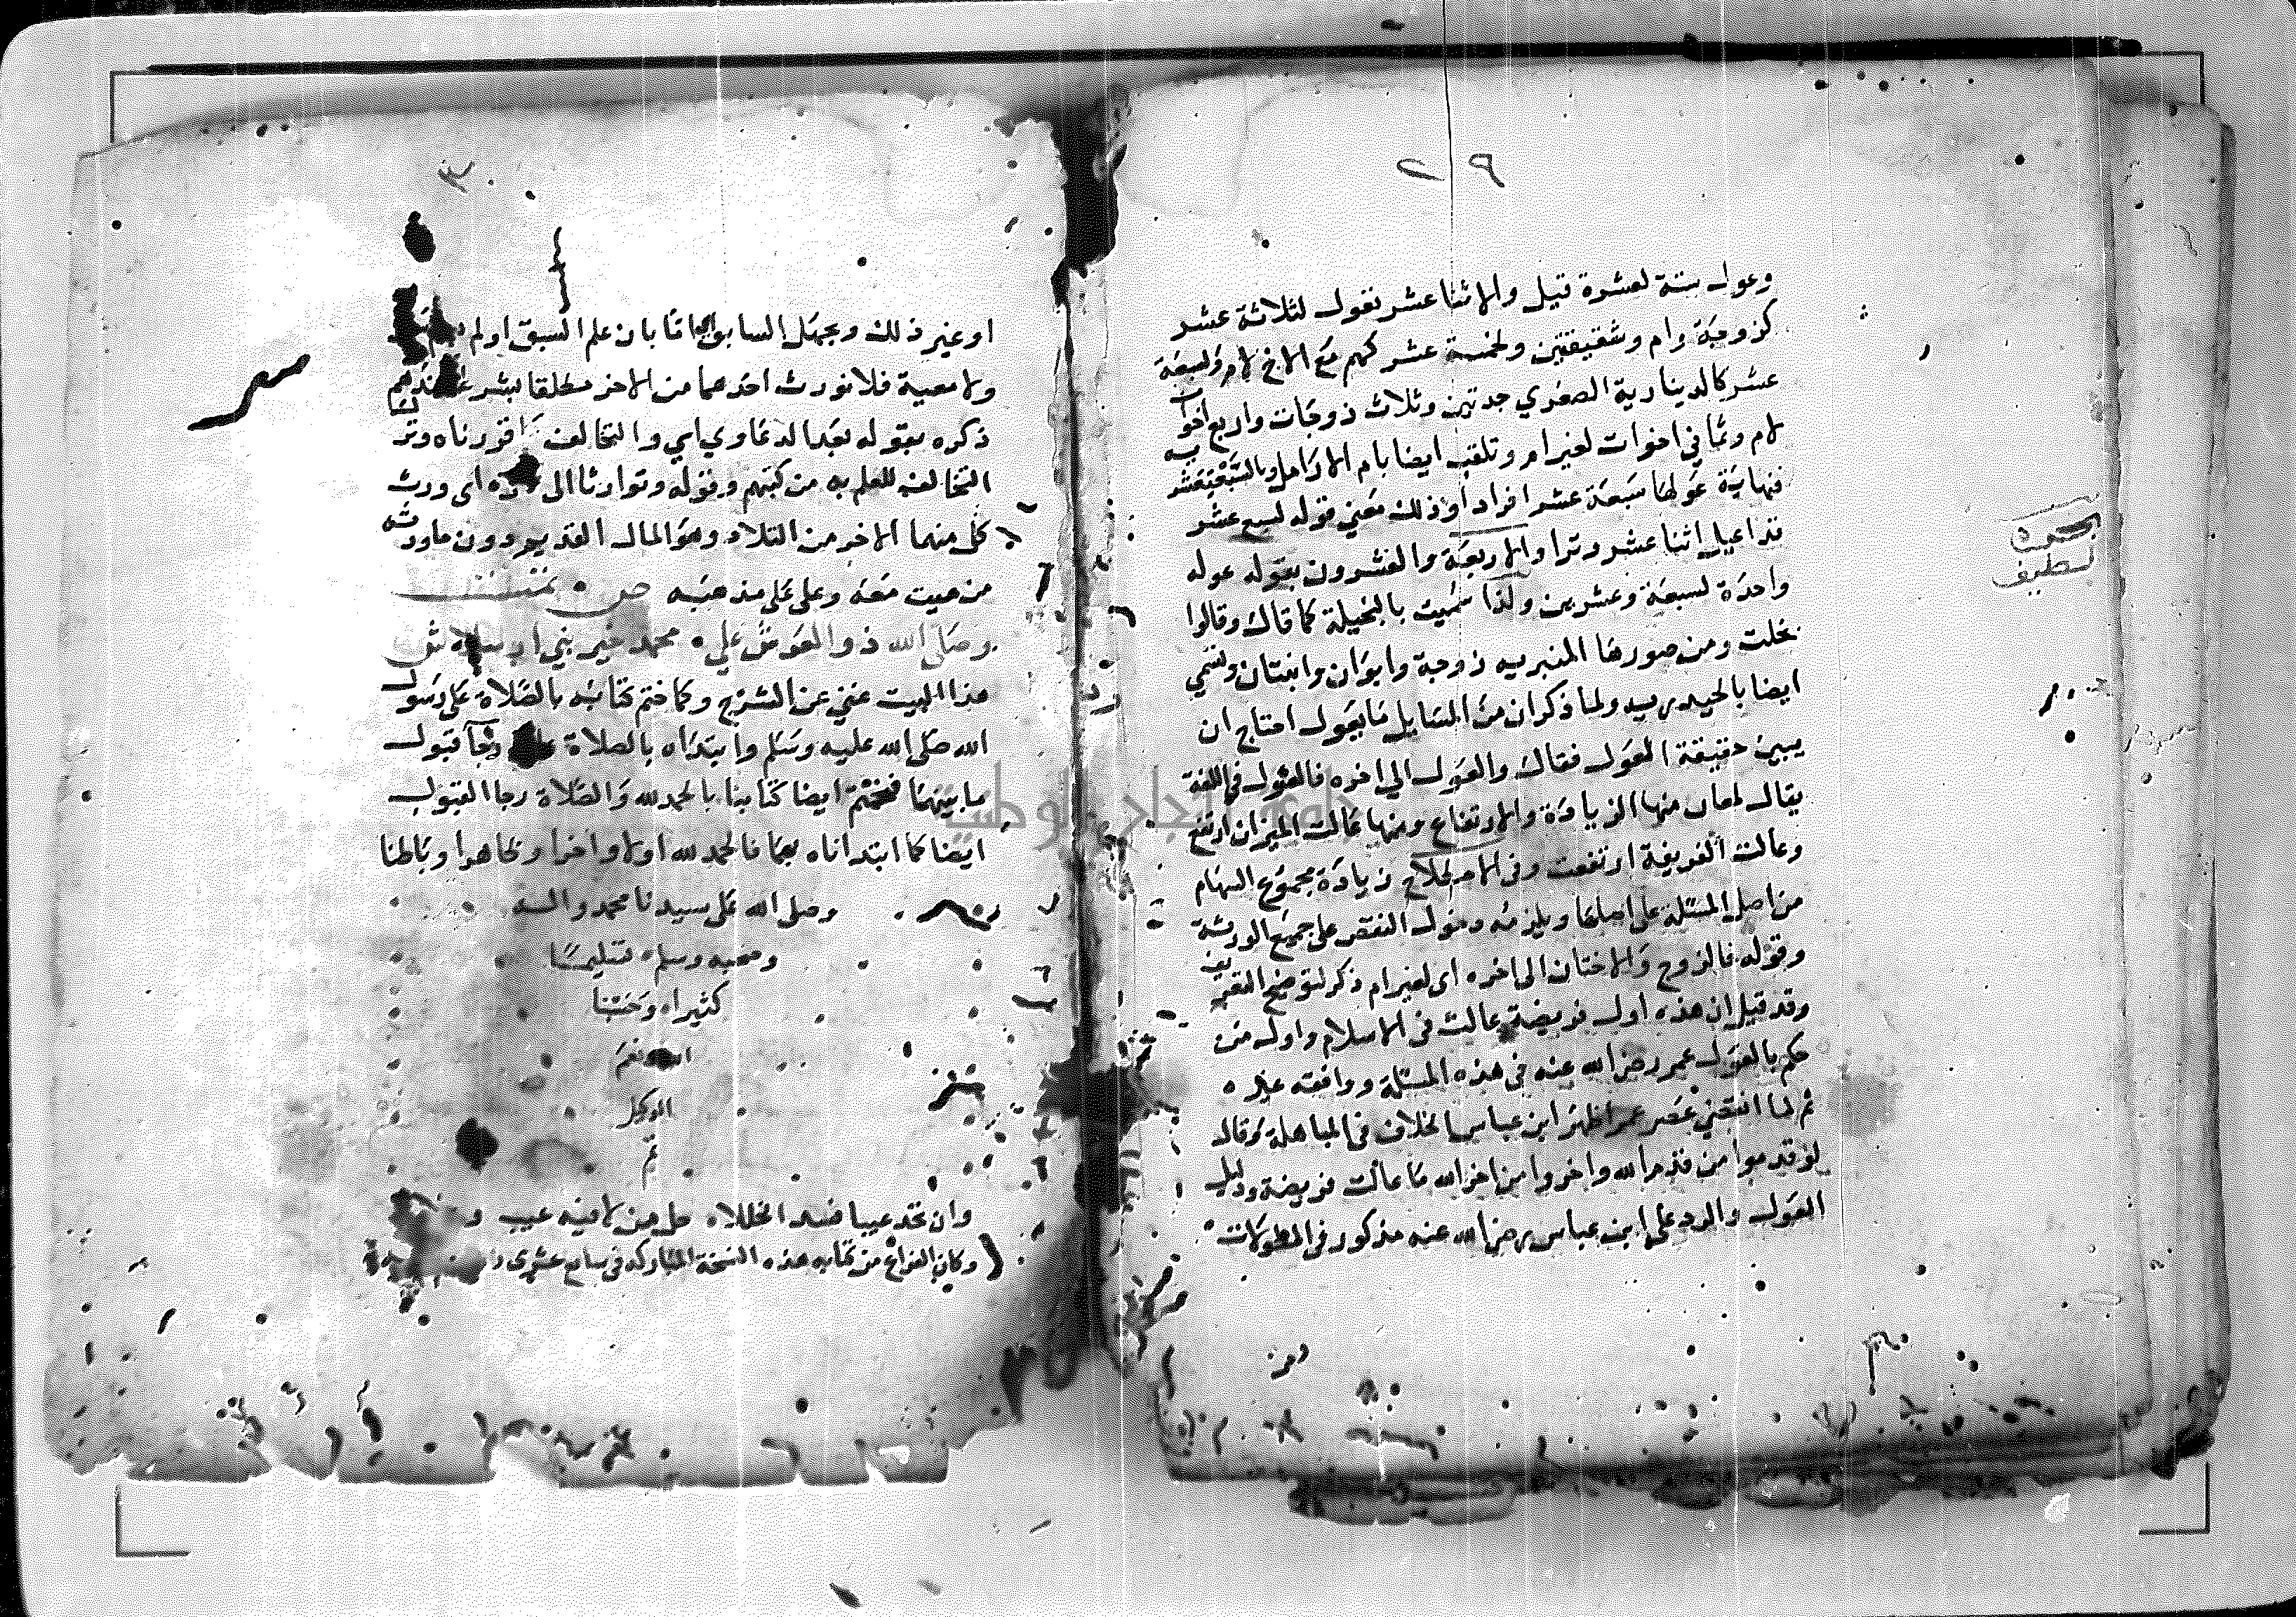 ٢٩
وعول ستة لعشرة قيل والاثنا عشر نقول لثلاثة عشر
كزوجة وام وشقيقتين ولخمسة عشر كهم مع الاخ لام ولسبعة
عشر كالدينارية الصغري جدتين وثلاث زوجات واربع اخوات
لام وثماني اخوات لغير ام وتلقب ايضا بام الارامل وبالسبعة عشر
فنهاية عولها سبعة عشر افرادا وذلك معني قوله لسبع عشر
قد اعيل اثنا عشر وترا والاربعة والعشرون بقوله عوله
واحدة لسبعة وعشرين ولذا سميت بالبخيلة كما قال وقالوا
بخلت ومن صورها المنبريه زوجة وابوان وابنتان وتسمي
ايضا بالحيدريه ولما ذكر ان من المسايل ما يعول احتاج ان
يبين حقيقة العول فقال والعول الي اخره فالعول في اللغة
يقال لمعان منها الزيادة والارتفاع ومنها عالت الميزان ارتفع
وعالت الفريضة ارتفعت وفي الاصطلاح زيادة مجموع السهام
من اصل المسئلة على اصلها ويلزمه دخول النقص على جميع الورثة
وقوله فالزوج والاختان الى اخره اى لغير ام ذكر لتوضيح التعريف
وقد قيل ان هذه اول فريضة عالت فى الاسلام واول من
حكم بالعول عمر رضى الله عنه فى هذه المسئلة ووافقه عليه
ثم لما انقضي عصر عمر اظهر ابن عباس الخلاف فى المباهلة وقال
لو قدموا من قدم الله واخروا من اخر الله ما عالت فريضة ودليل
العول والرد على ابن عباس رضى الله عنه مذكور فى المطولات
ومن
لطيف
او غير ذلك ويجهل السابق اما بان علم السبق او لم
ولا معية فلا نورث احدهما من الاخر مطلقا بشر
ذكره بقوله بعد الدعاوي اي والتخالف قررناه وتر
التخالف للعلم به من كتبهم وقوله وتوارثا الى اى ورث
كل منهما الاخر من التلاد وهو المال القديم دون ما ورثه
من ميت معه وعلى على مذهبه ص
وصلى الله ذو العرش علي محمد خير بني ش
هذا البيت غني عن الشرح وكما ختم كتابه بالصلاة على رسول
الله صلى الله عليه وسلم وابتداه بالصلاة رجا قبول
ما بينهما فختم ايضا كتابنا بالحمد لله والصلاة رجا القبول
ايضا كما ابتداناه بهما فالحمد لله اولا واخرا وظاهرا وباطنا
وصلى الله على سيدنا محمد واله
وصحبه وسلم تسليما
كثيرا وحسبنا
الله ونعم
الوكيل
تم
وان تجد عيبا فسد الخللا جل من لا فيه عيب و
وكان الفراغ من كتابه هذه النسخة المباركه في سابع عشرى